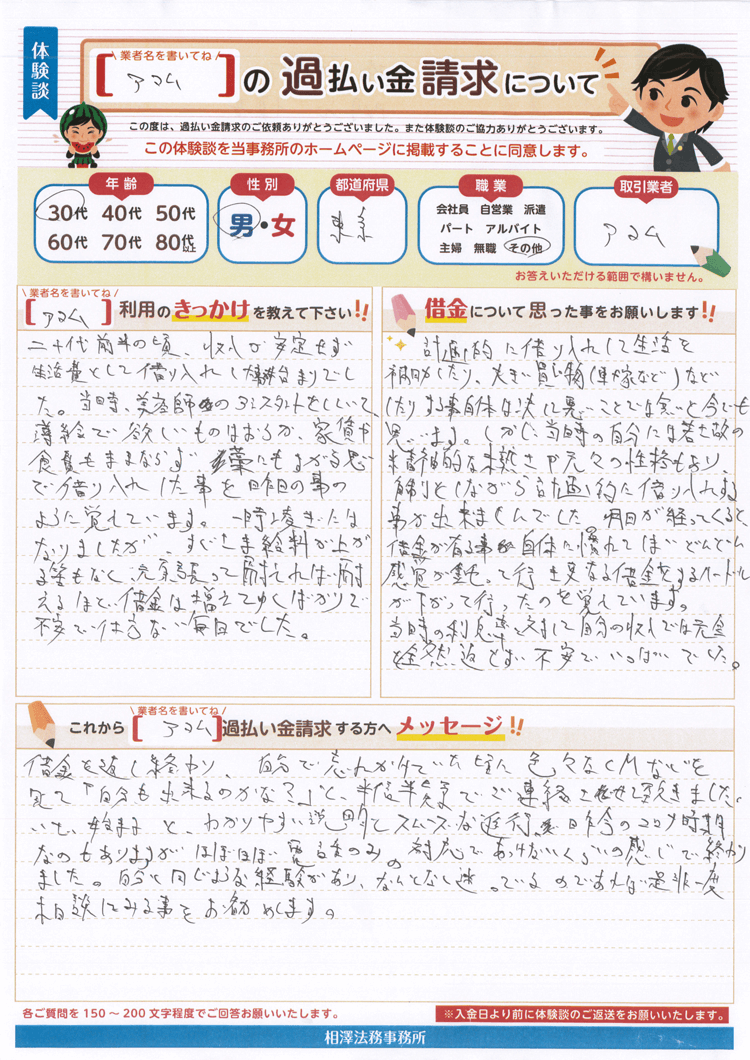 体験談
業者名を書いてね
[アコム]の過払い金請求について
この度は、過払い金請求のご依頼ありがとうございました。また体験談のご協力ありがとうございます。
この体験談を当事務所のホームページに掲載することに同意します。
年齢
30代 40代 50代
60代 70代 80代以上
性別
男・女
都道府県
東京
職業
会社員 自営業 派遣
パート アルバイト
主婦 無職 その他
取引業者
アコム
お答えいただける範囲で構いません。
業者名を書いてね
[アコム]利用のきっかけを教えて下さい!!
二十代前半の頃、収入が安定せず
生活費として借り入れしたのが始まりでし
た。当時、美容師のアシスタントをしていて、
薄給で欲しいものはおろか、家賃や
食費もままならず藁にもすがる思い
で借り入れした事を昨日の事の
ように覚えています。一時凌ぎには
なりましたが、すぐさま給料が上が
る筈もなく、元気張って耐えれば耐
えるほど、借金は増えてゆくばかりで
不安で仕方ない毎日でした。
借金について思った事をお願いします!!
計画的に借り入れして生活を
補助したり、大きい買い物(車、家など)など
したりする事自体は決して悪いことでは無いと今でも
思います。しかし当時の自分には若さ故の
精神的な未熟さや元々の性格もあり、
節制しながら計画的に借り入れする
事が出来ませんでした。月日が経ってくると
借金が有る事自体に慣れてしまいどんどん
感覚が鈍って行き更なる借金をするハードル
が下がって行ったのを覚えています。
当時の利息率、そして自分の収入では元金
を全然返せず不安でいっぱいでした。
これから
業者名を書いてね
[アコム]過払い金請求する方へメッセージ!!
借金を返し終わり、自分で忘れかけていた時に色々なCMなどを
見て「自分も出来るのかな?」と、半信半疑でご連絡させて頂きました。
いざ、始まると、わかりやすい説明とスムーズな進行、昨今のコロナ時期
なのもありますがほぼほぼ電話のみの対応であっけないくらいの感じで終わり
ました。自分と同じような経験があり、なんとなく迷っているのであれば是非一度
相談してみる事をお勧めします。
各ご質問を150〜200文字程度でご回答お願いいたします。
※入金日より前に体験談のご返送をお願いいたします。
相澤法務事務所